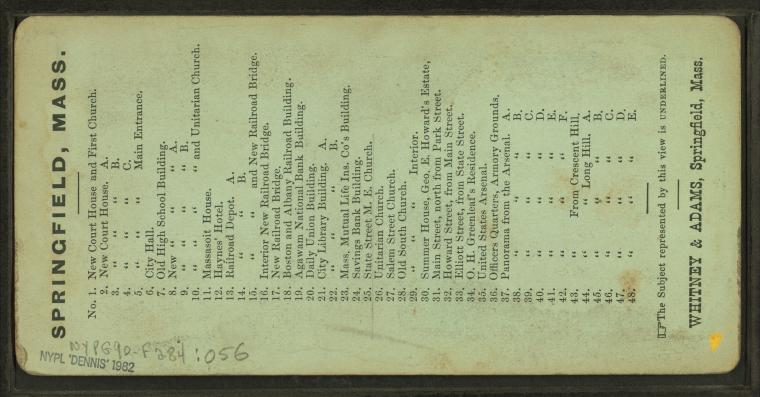 SPRINGFIELD, MASS.
No. 1. New Court House and First Church.
2. New Court House. A.
3. " " " B.
4. " " " C.
5. " " " Main Entrance.
6. City Hall.
7. Old High School Building.
8. New " " " A.
9. " " " " B.
10. " " " " and Unitarian Church.
11. Massasoit House.
12. Haynes' Hotel.
13. Railroad Depot. A.
14. " " B.
15. " " and New Railroad Bridge.
16. Interior New Railroad Bridge.
17. New Railroad Bridge.
18. Boston and Albany Railroad Building.
19. Agawam National Bank Building.
20. Daily Union Building.
21. City Library Building. A.
22. " " " B.
23. Mass. Mutual Life Ins. Co's Building.
24. Savings Bank Building.
25. State Street M. E. Church.
26. Unitarian Church.
27. Salem Street Church.
28. Old South Church.
29. " " " Interior.
30. Summer House, Geo. E. Howard's Estate,
31. Main Street, north from Park Street.
32. Howard Street, from Main Street.
33. Elliott Street, from State Street.
34. O. H. Greenleaf's Residence.
35. United States Arsenal.
36. Officers Quarters, Armory Grounds.
37. Panorama from the Arsenal. A.
38. " " " " B.
39. " " " " C.
40. " " " " D.
41. " " " " E.
42. " " " " F.
43. " From Crescent Hill.
44. " " Long Hill. A.
45. " " " " B.
46. " " " " C.
47. " " " " D.
48. " " " " E.
☞The Subject represented by this view is UNDERLINED.
WHITNEY & ADAMS, Springfield, Mass.
NYPG90-F284:056
NYPL 'DENNIS' 1982